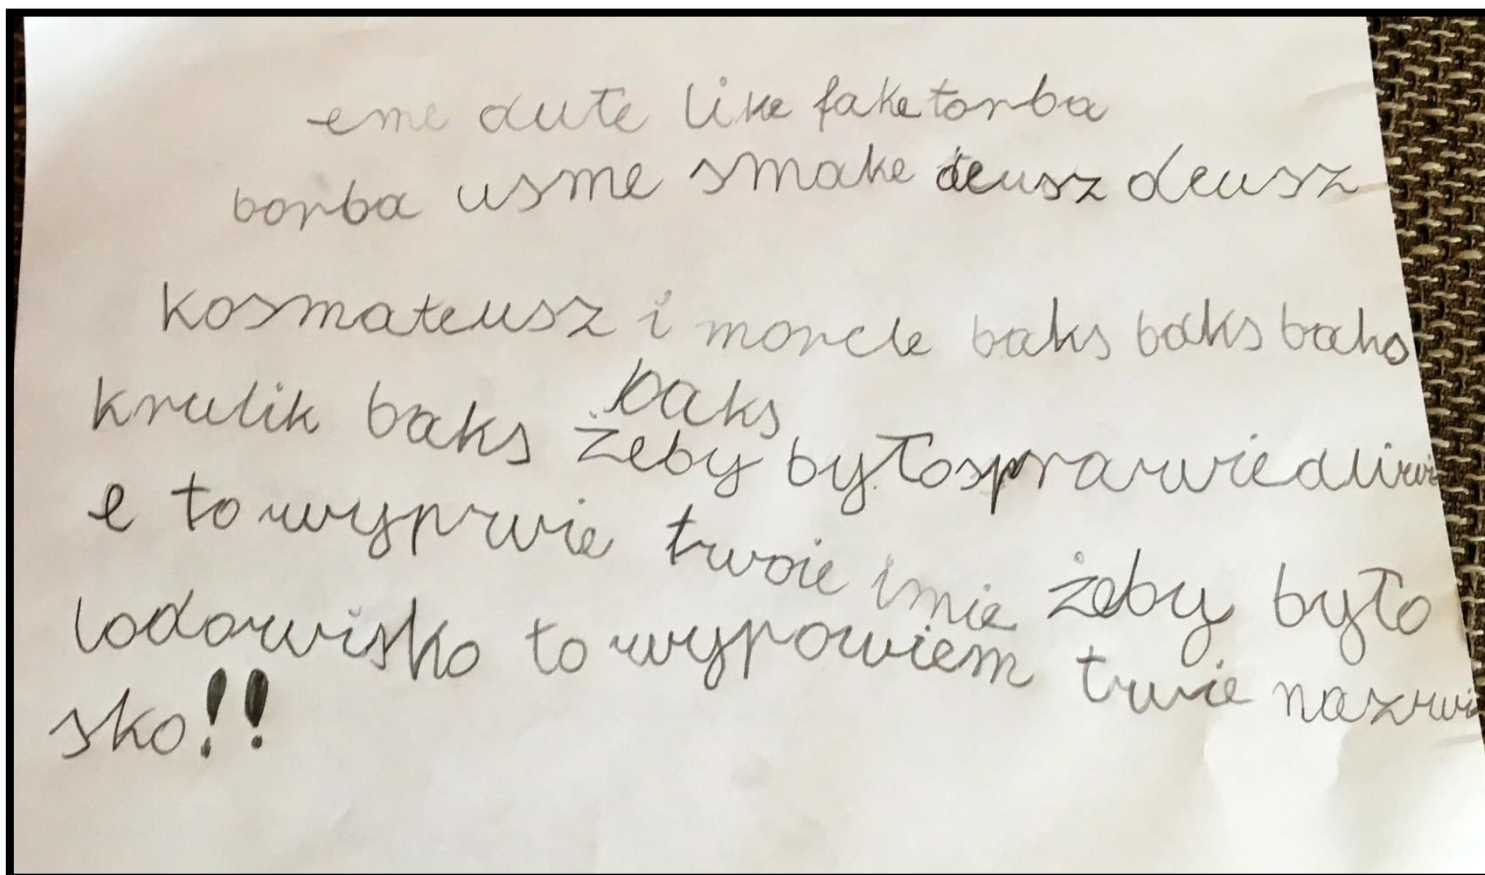 eme dute like faketorba
borba usme smake deusz deusz
kosmateusz i morele baks baks baks
krulik baks baks
żeby byłosprawiedliwi
e to wyprwie twoie imie żeby było
lodowisko to wypowiem twie nazwi
sko!!